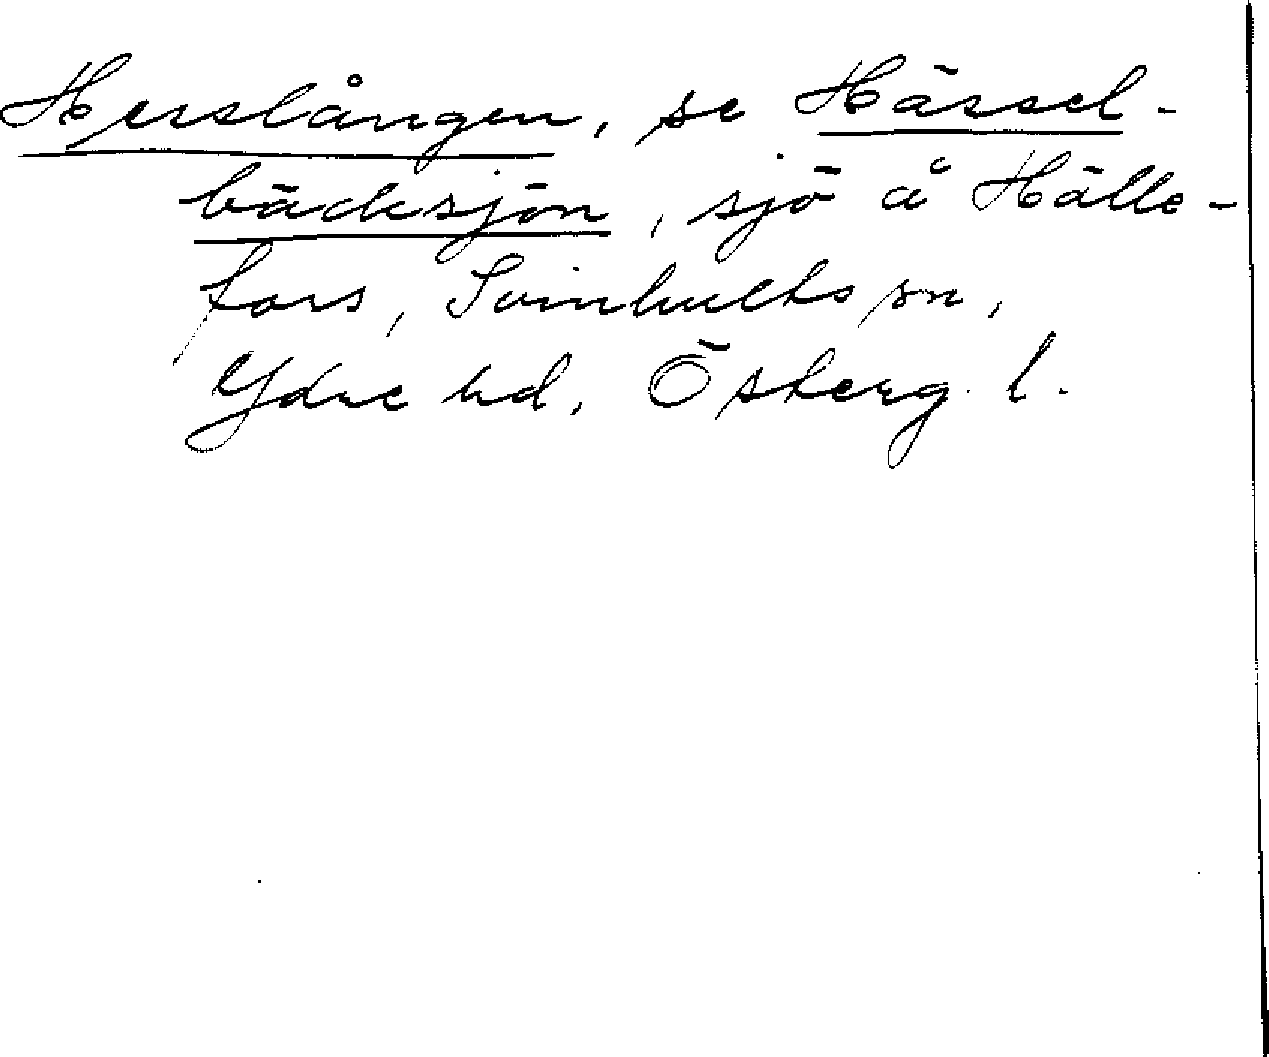 Hjerslången, se Hässel-
bäcksjön, sjö å Hälle-
fors, Svinhults sn,
Ydre hd, Österg. l.